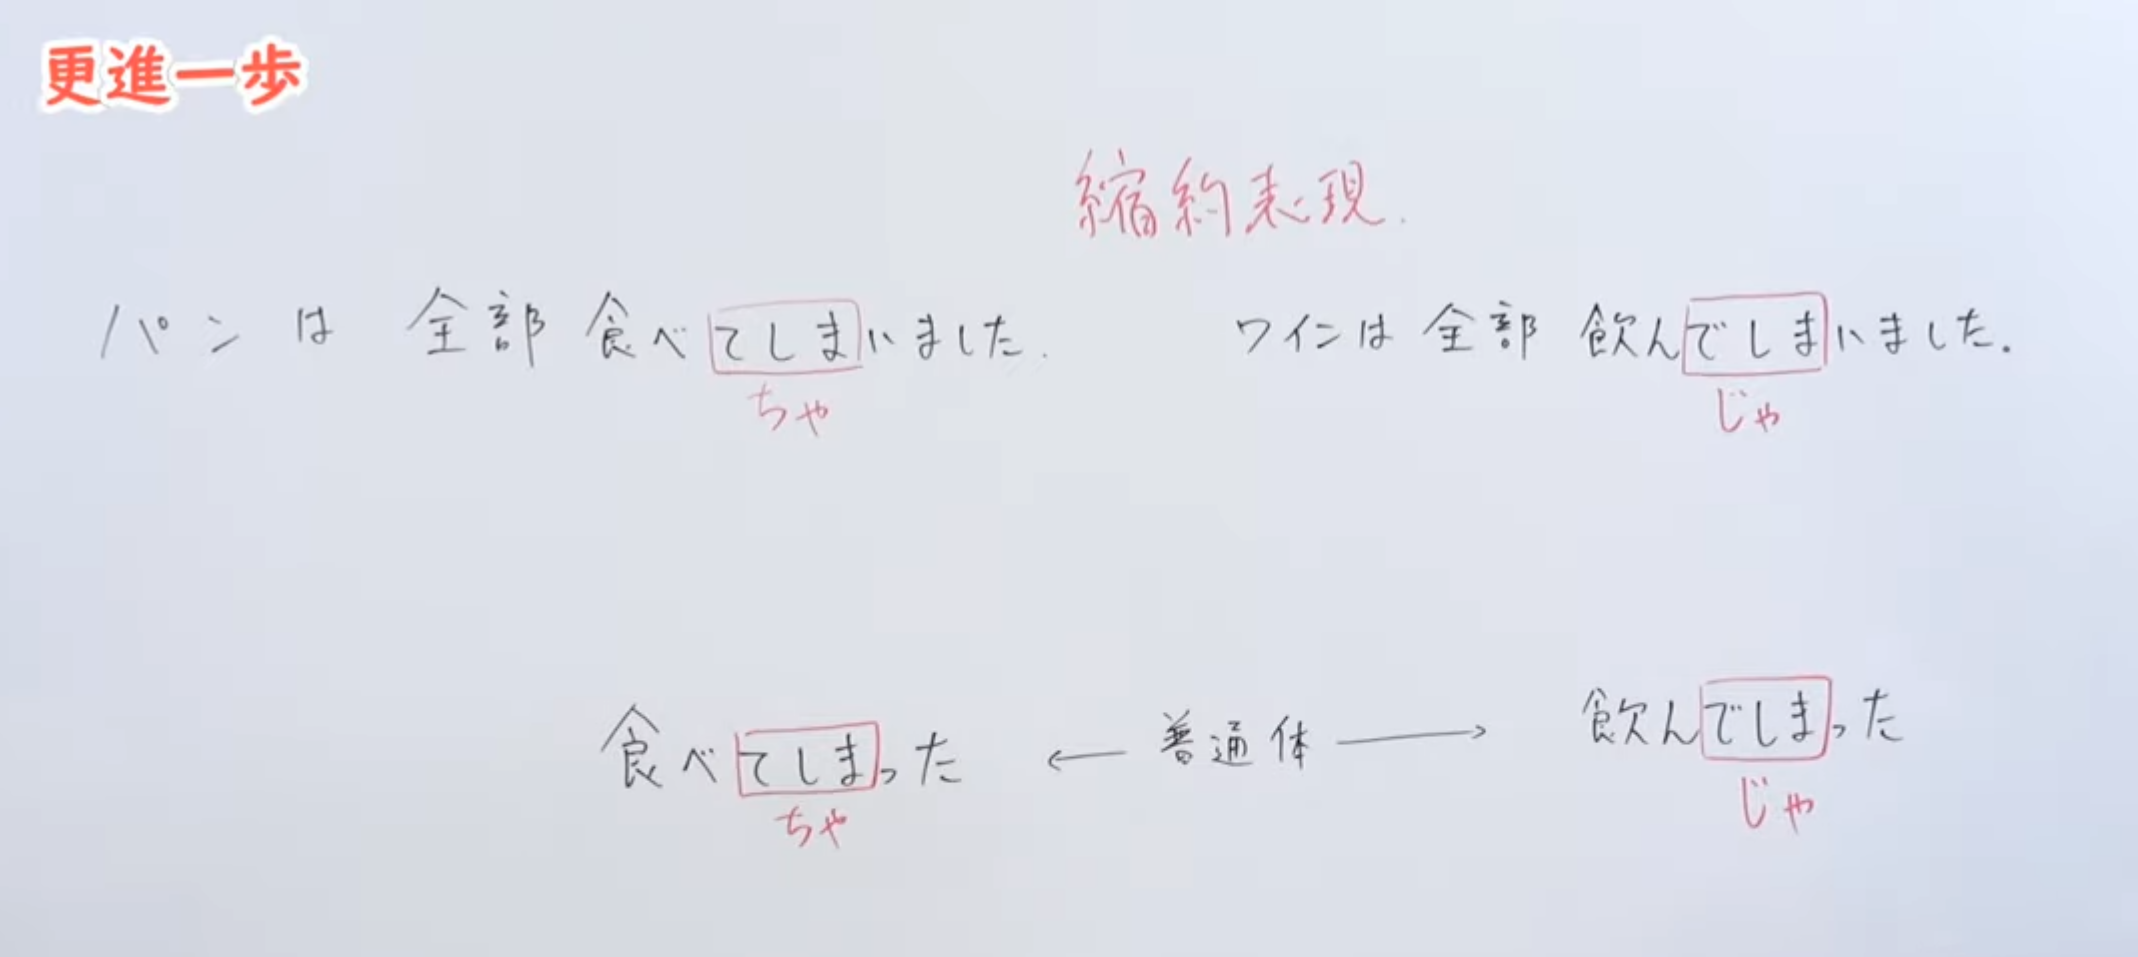 更進一歩
縮約表現.
パンは 全部 食べてしまいました. ワインは 全部 飲んでしまいました.
ちゃ じゃ
食べてしまった ← 普通体 → 飲んでしまった
ちゃ じゃ